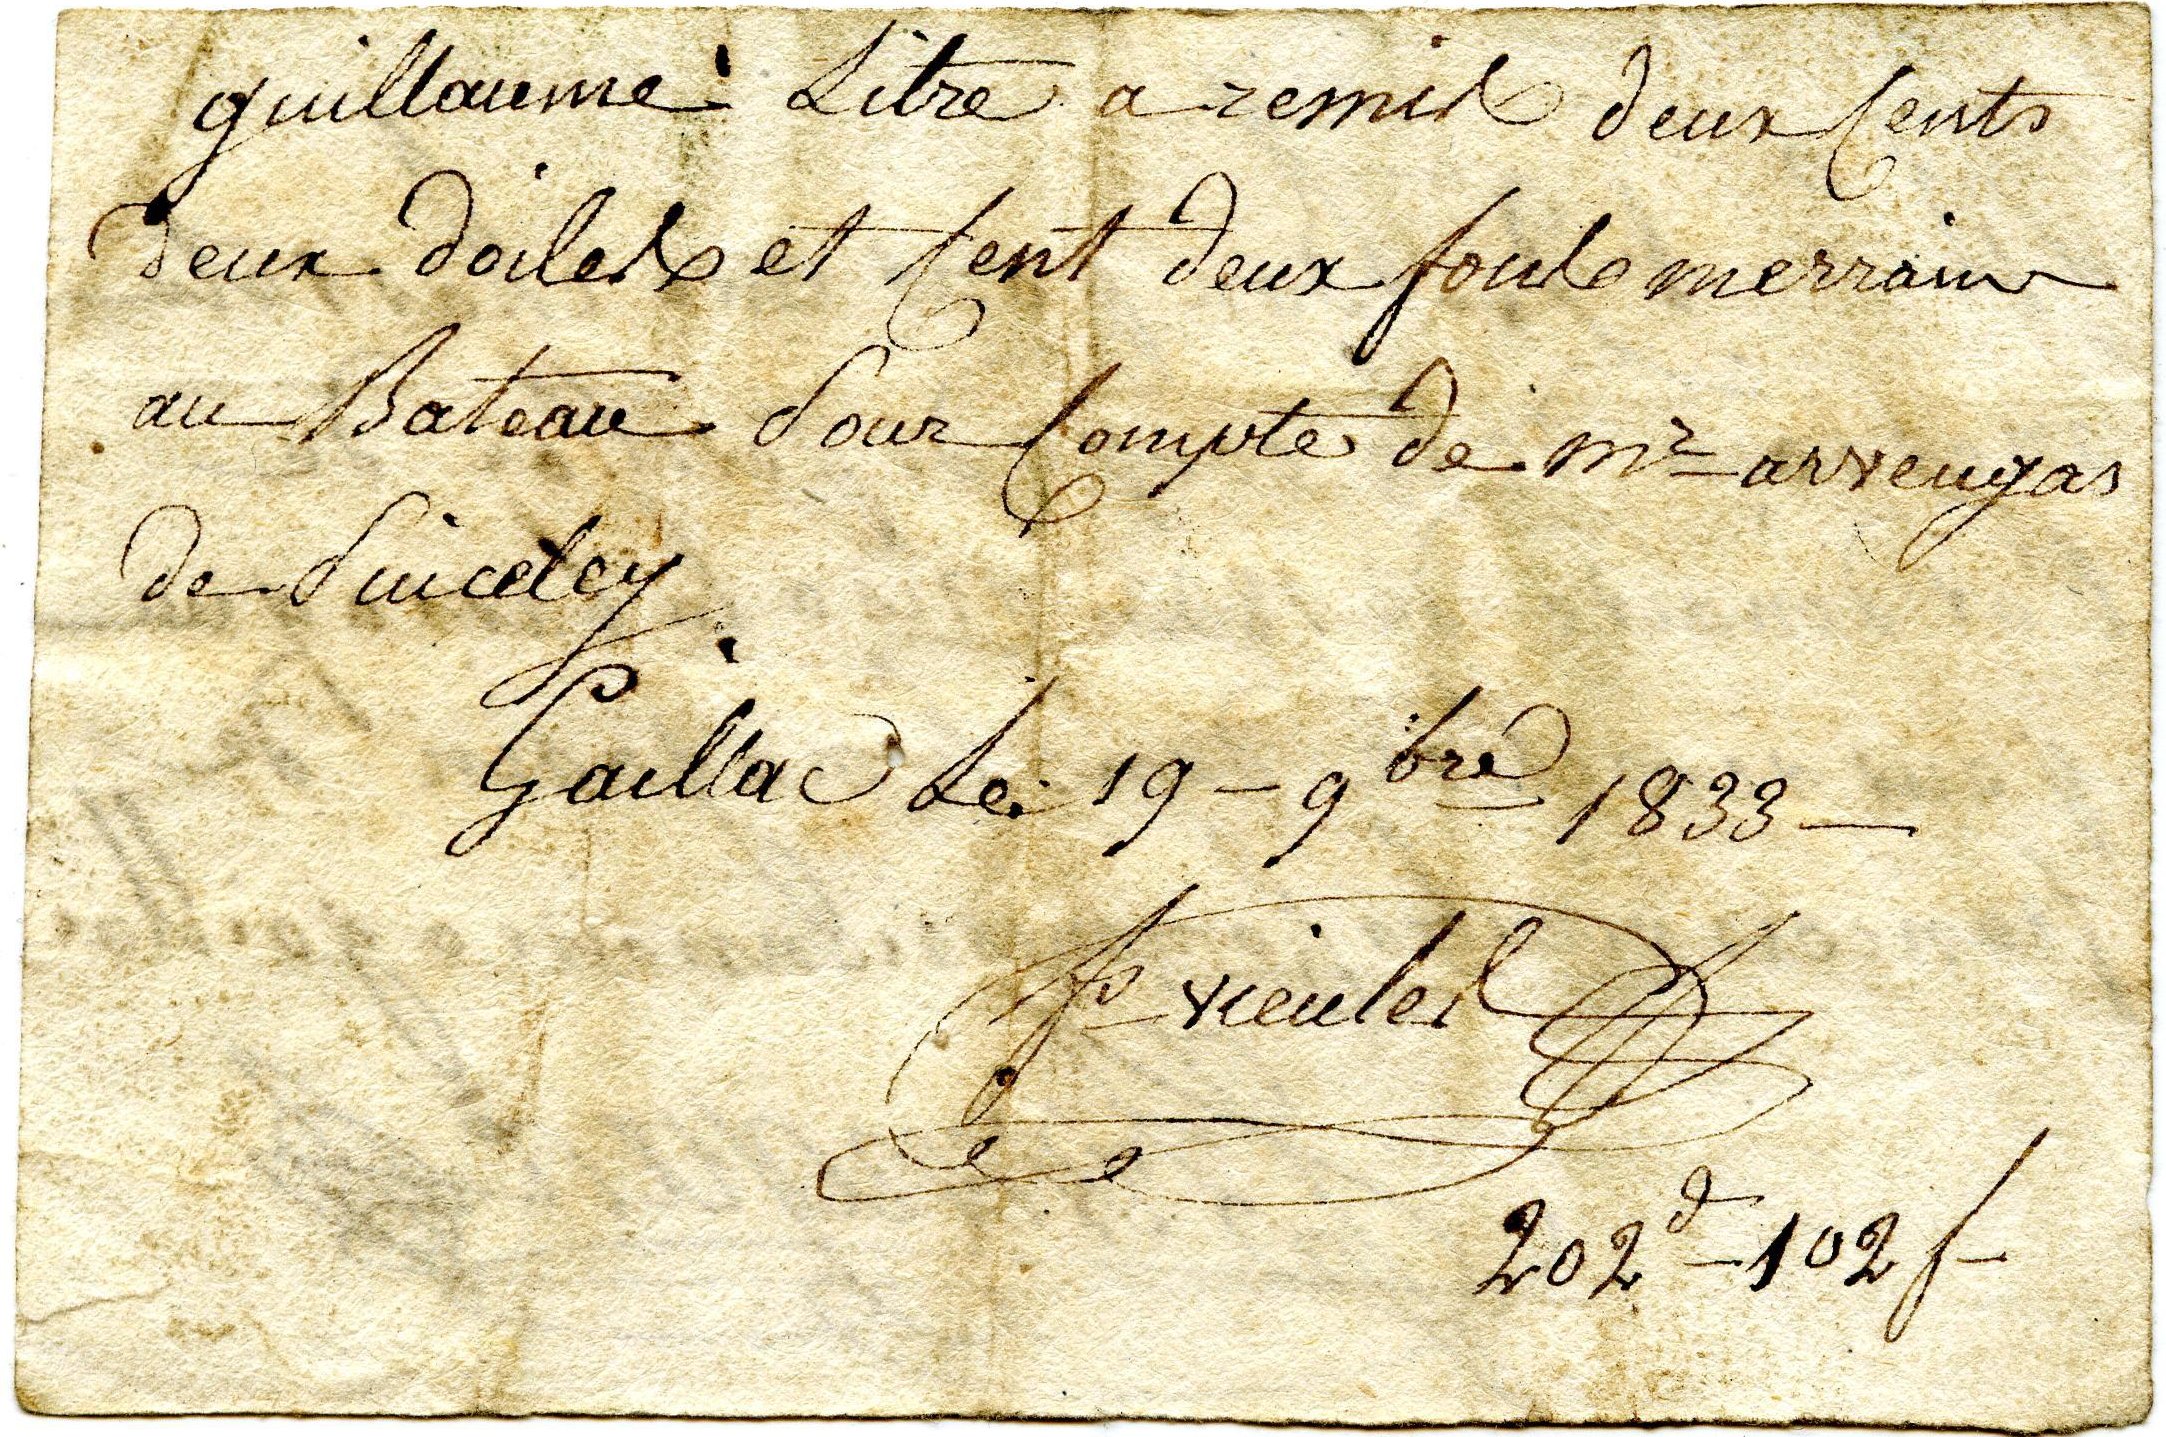 guillaume Litre a remis deux Cents
deux doiles et Cent deux fons merrain
au Bateau Pour Compte de Mr arvengas
de Puicelcy
Gaillac Le 19 - 9bre 1833 -
vieules
202 d - 102 f